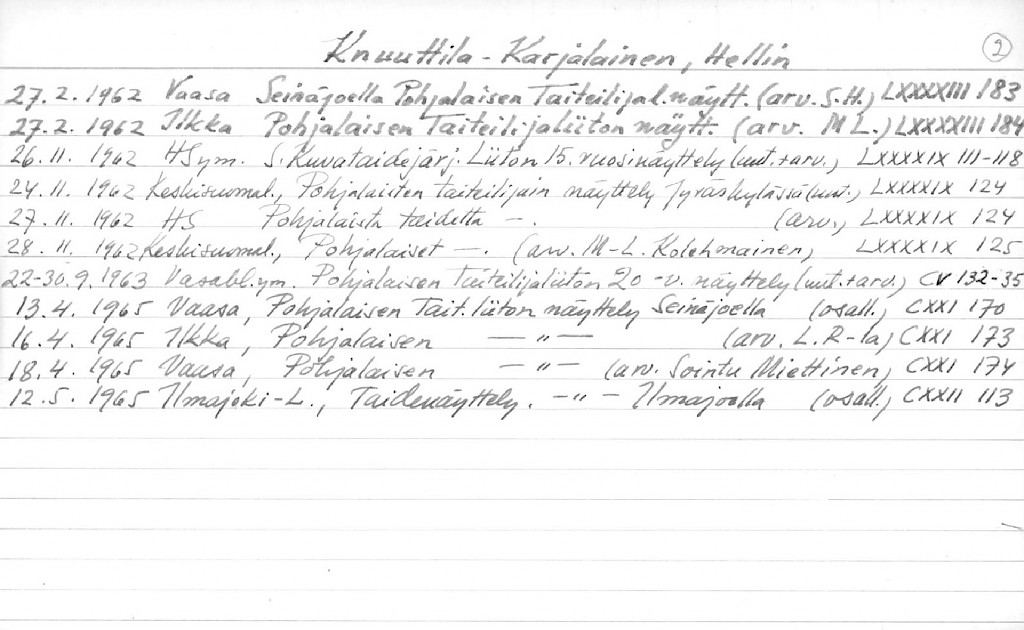 2
Knuuttila - Karjalainen, Hellin
27.2.1962 Vaasa Seinäjoella Pohjalaisen Taiteilijal.näytt. (arv. S.H.) LXXXXIII 183
27.2.1962 Ilkka Pohjalaisen Taiteilijaliiton näytt. (arv. M L.) LXXXXIII 184
26.11.1962 HS ym. S. Kuvataidejärj. Liiton 15. vuosinäyttely (uut.+arv.) LXXXXIX 111-118
24.11.1962 Keskisuomal., Pohjalaisten taiteilijain näyttely Jyväskylässä (uut.) LXXXXIX 124
27.11.1962 HS Pohjalaista taidetta -. (arv.) LXXXXIX 124
28.11.1962 Keskisuomal., Pohjalaiset -. (arv. M-L. Kolehmainen) LXXXXIX 125
22-30.9.1963 Vasabl. ym. Pohjalaisen Taiteilijaliiton 20-v. näyttely (uut.+arv.) CV 132-35
13.4.1965 Vaasa, Pohjalaisen Tait.liiton näyttely Seinäjoella (osall.) CXXI 170
16.4.1965 Ilkka, Pohjalaisen -"- (arv. L.R-la) CXXI 173
18.4.1965 Vaasa, Pohjalaisen -"- (arv. Sointu Miettinen) CXXI 174
12.5.1965 Ilmajoki-L., Taidenäyttely. -"- Ilmajoella (osall.) CXXII 113